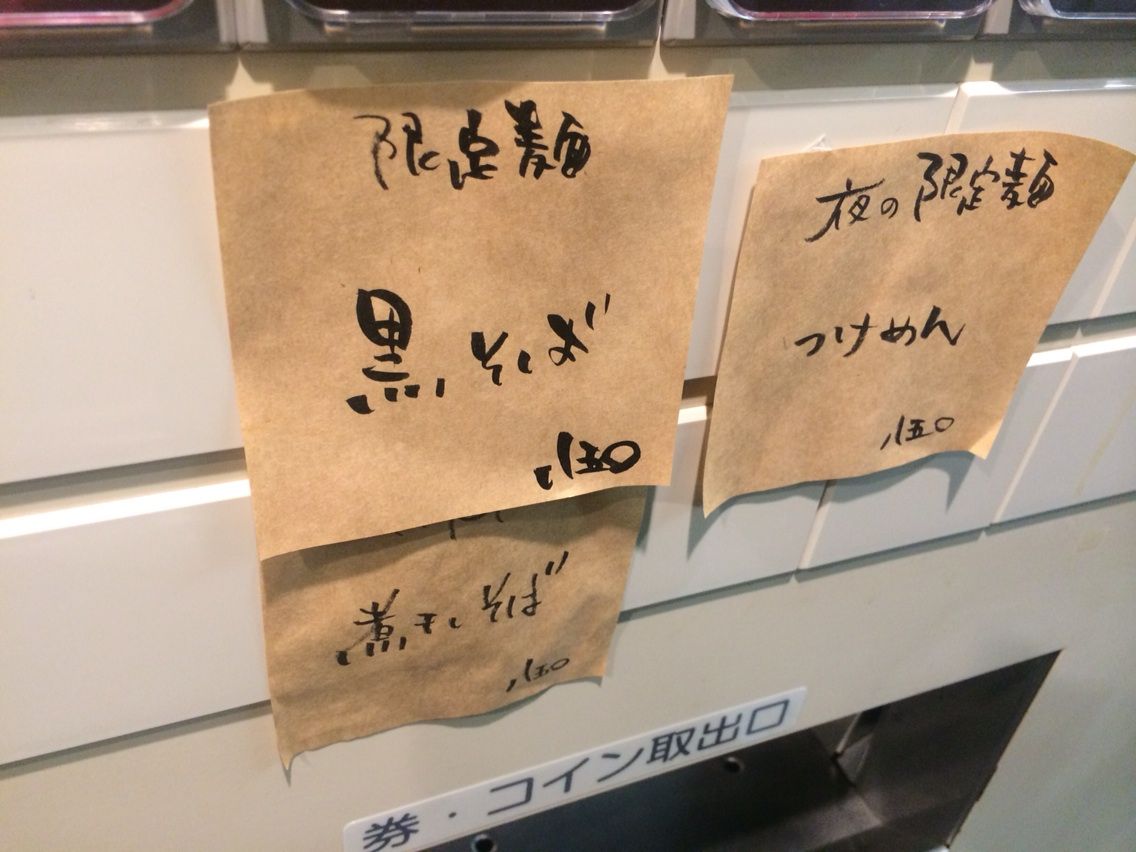 限定麺
黒そば
八五〇
夜の限定麺
つけめん
八五〇
煮干しそば
八五〇
券・コイン取出口